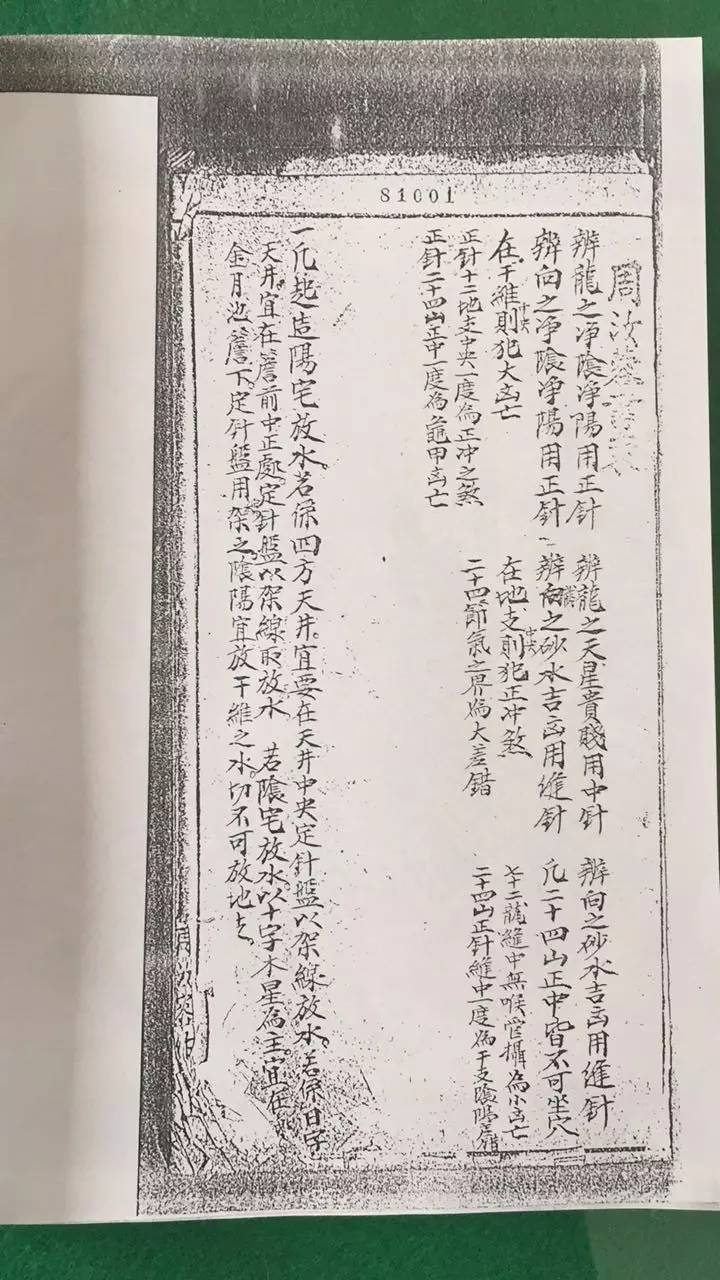 81001
周汝
辨龍之净陰净陽用正針 辨龍之天星貴賤用中針 辨向之砂水吉凶用縫針
辨向之净陰净陽用正針 辨向之砂水吉凶用縫針 凢二十四山正中皆不可坐穴
在干維中央則犯大凶亡 在地支中央則犯正冲煞
正針十二地支中央一度為正冲之煞 二十四節氣之界為大差錯 七十二龍縫中無喉管攝為小凶亡
正針二十四山正中一度為龜甲凶亡 二十四山正針縫中一度為干支陰陽差
一凢起造陽宅放水若係四方天井宜要在天井中央定針盤以架線放水若係日字
天井宜在簷前中正處定針盤以架線取放水 若陰宅放水以十字木星為主宜在
金月池簷下定針盤用架之陰陽宜放干維之水切不可放地支